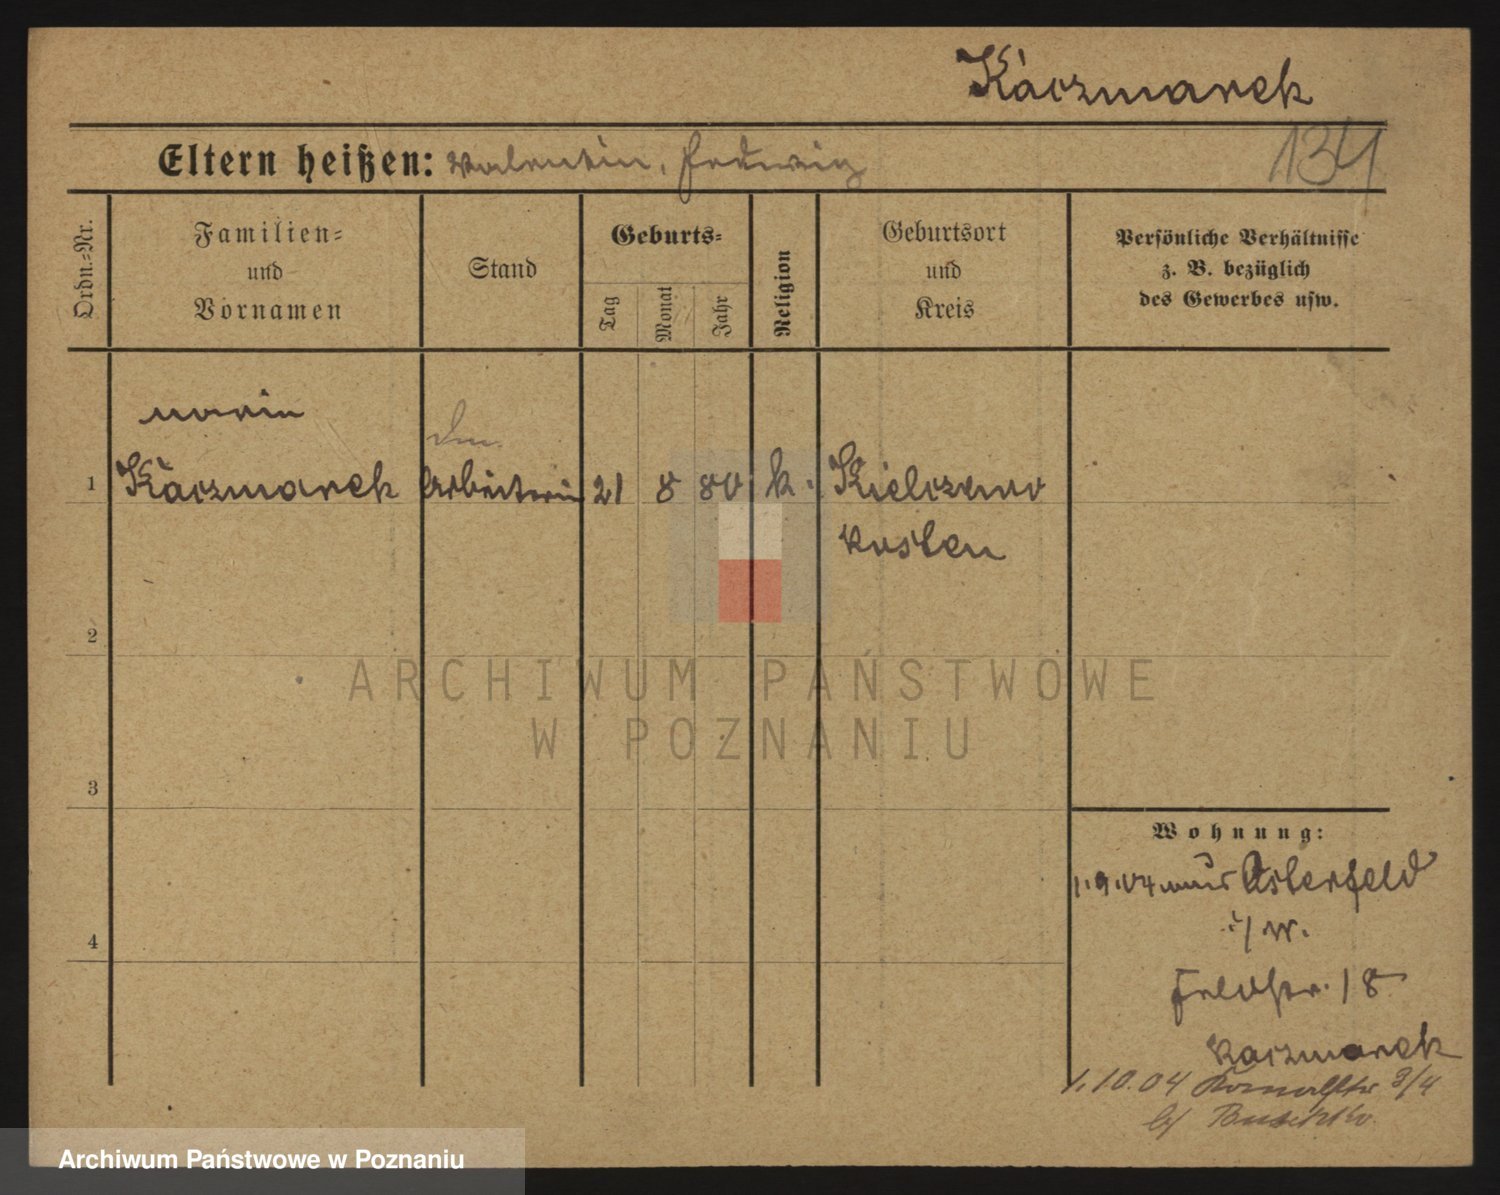 Kaczmarek
134
Eltern heißen: Valentin, Hedwig
Ordn.-Nr.
Familien-
und
Vornamen
Stand
Geburts-
Tag
Monat
Jahr
Religion
Geburtsort
und
Kreis
Persönliche Verhältnisse
z. B. bezüglich
des Gewerbes usw.
Maria
1 Kaczmarek Arbeiterin 21 8 80 k. Kielczewo
Kosten
2
ARCHIWUM PAŃSTWOWE
W POZNANIU
3
Wohnung:
1.9.04 aus Osterfeld
i/W.
4
Feldstr. 18
Kaczmarek
1.10.04 3/4
b/
Archiwum Państwowe w Poznaniu